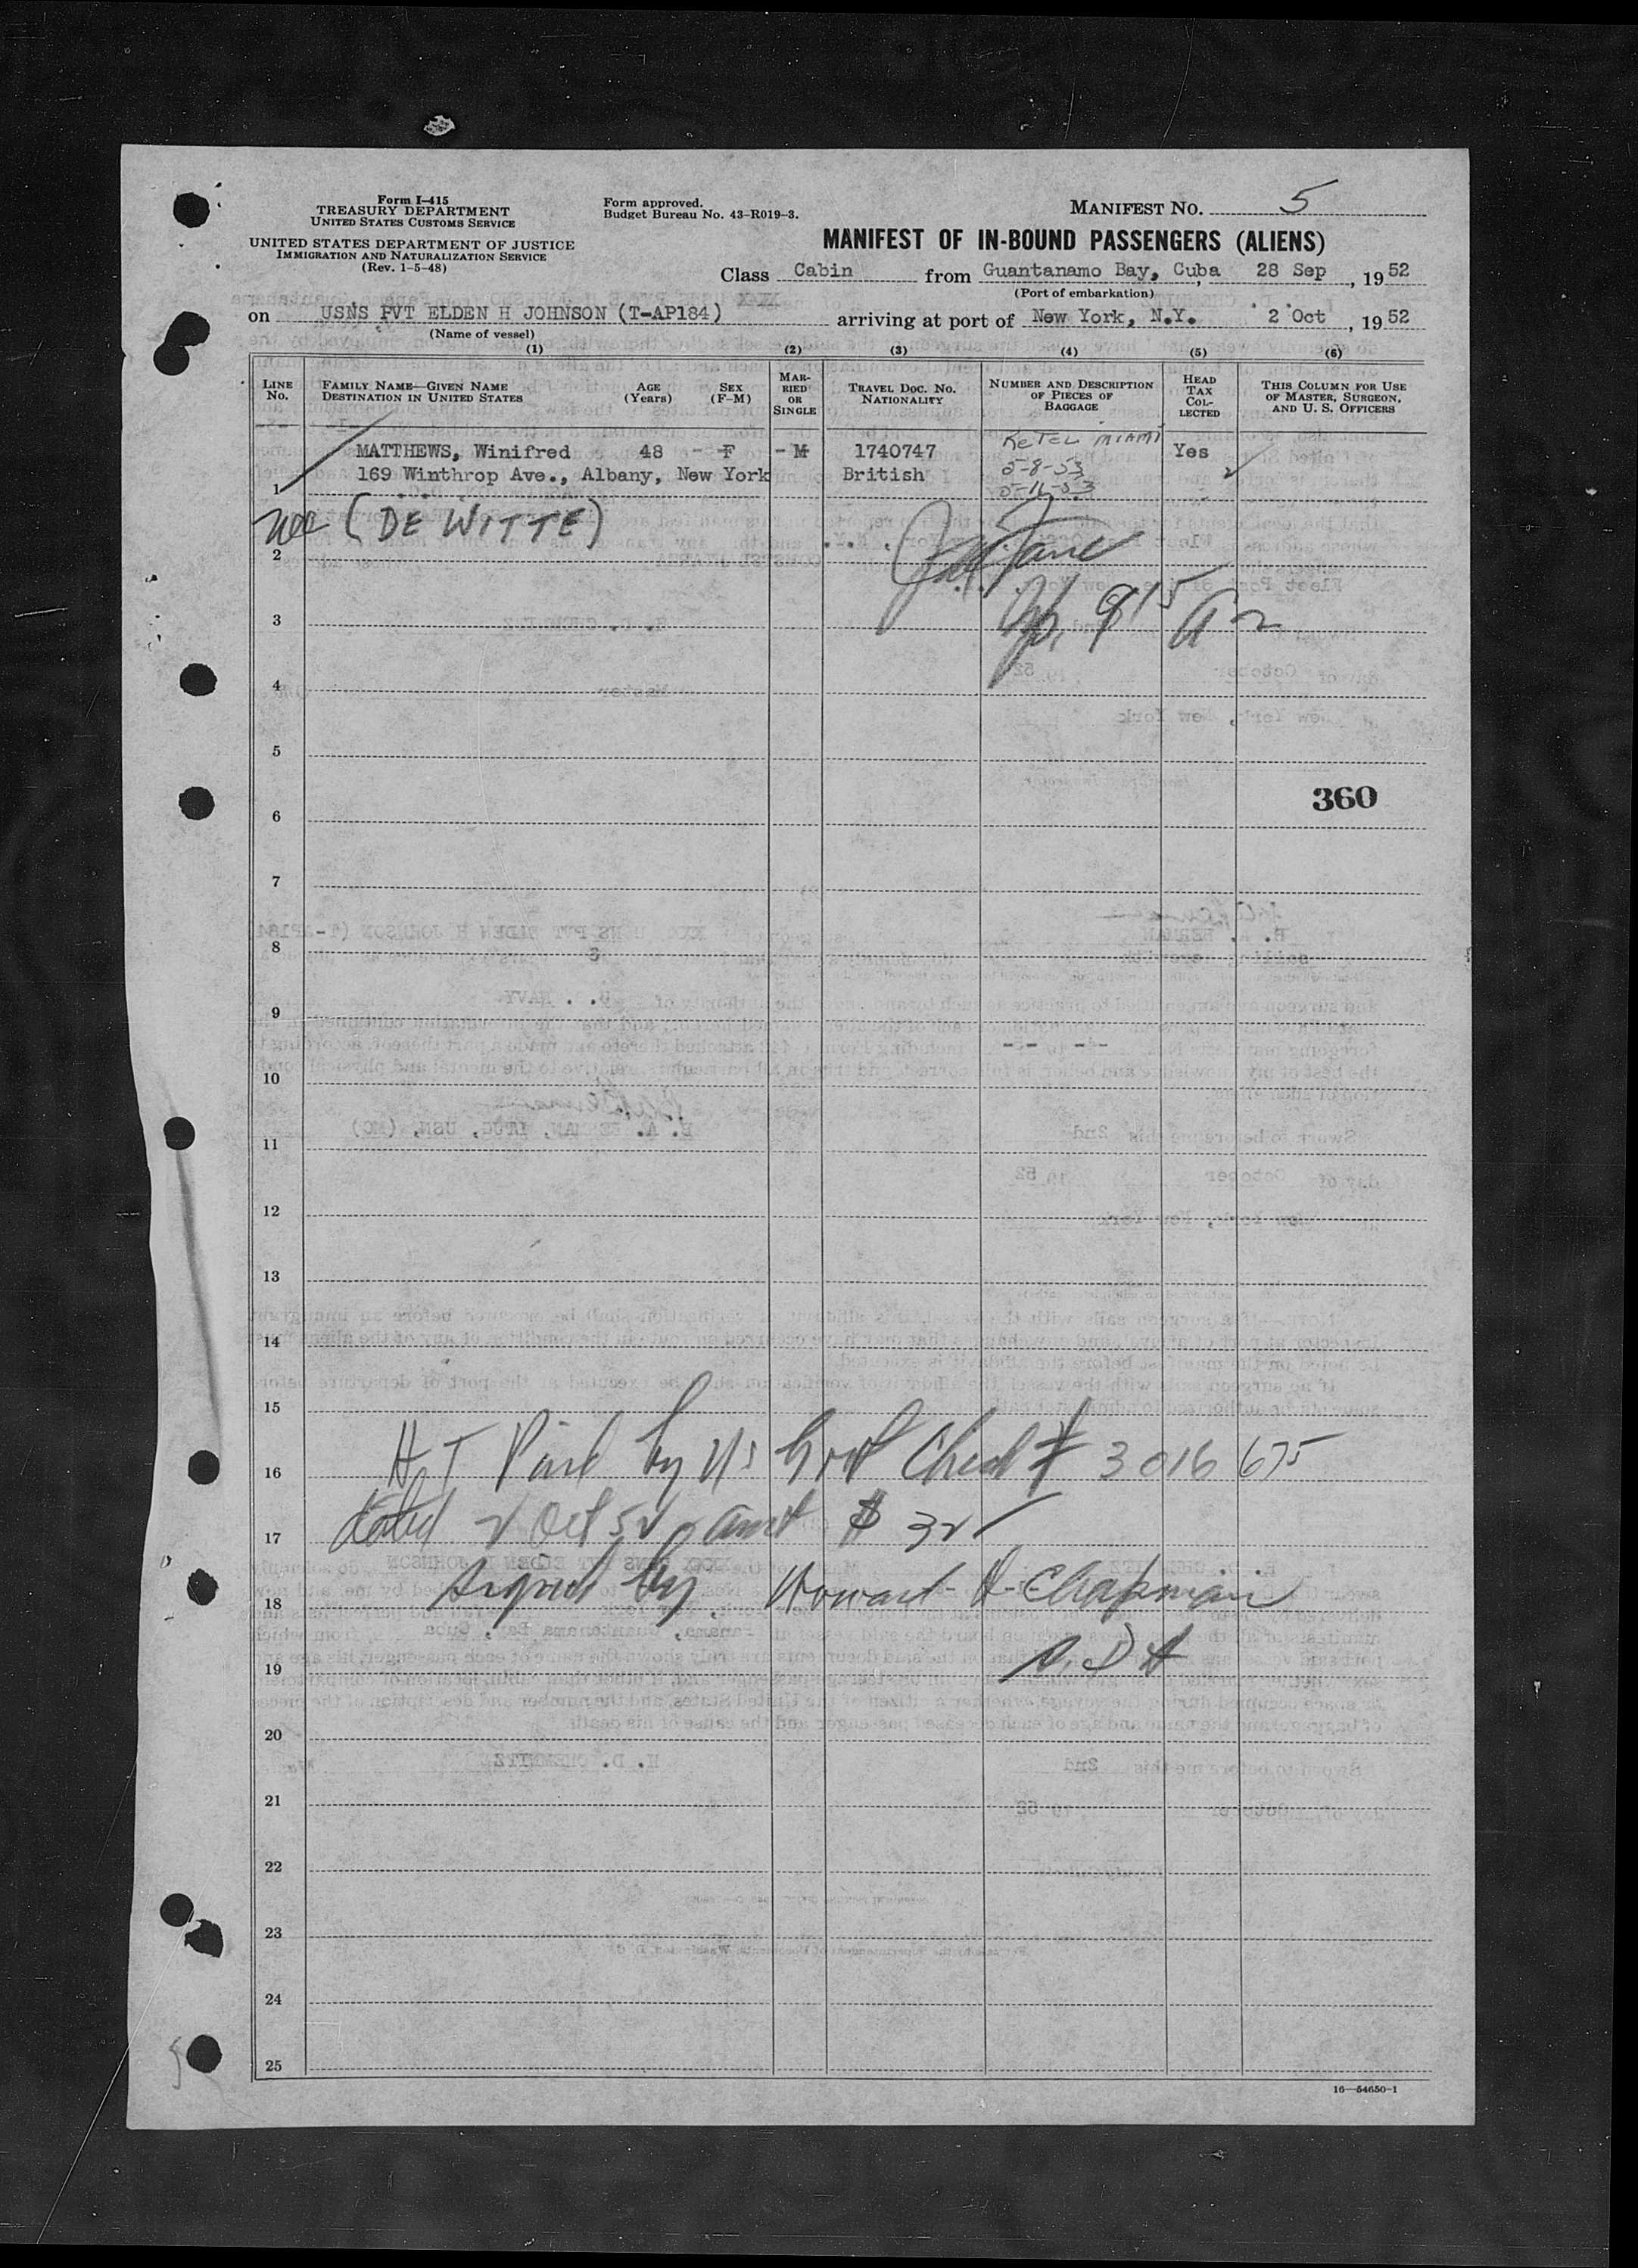 Form I-415
TREASURY DEPARTMENT
UNITED STATES CUSTOMS SERVICE
UNITED STATES DEPARTMENT OF JUSTICE
IMMIGRATION AND NATURALIZATION SERVICE
(Rev. 1-5-48)
Form approved.
Budget Bureau No. 43-R019-3.
MANIFEST NO. 5
MANIFEST OF IN-BOUND PASSENGERS (ALIENS)
Class Cabin from Guantanamo Bay, Cuba, 28 Sep, 1952
(Port of embarkation)
on USNS PVT ELDEN H JOHNSON (T-AP184) arriving at port of New York, N.Y. 2 Oct, 1952
(Name of vessel)
(1) (2) (3) (4) (5) (6)
LINE No. FAMILY NAME—GIVEN NAME DESTINATION IN UNITED STATES AGE (Years) SEX (F-M) MARRIED OR SINGLE TRAVEL DOC. NO. NATIONALITY NUMBER AND DESCRIPTION OF PIECES OF BAGGAGE HEAD TAX COLLECTED THIS COLUMN FOR USE OF MASTER, SURGEON, AND U. S. OFFICERS
MATTHEWS, Winifred 48 - F - M 1740747 MIAMI Yes
169 Winthrop Ave., Albany, New York British 5-8-53
1 5-16-53
nee (DE WITTE)
2
3
4
5
360
6
7
8
9
10
11
12
13
14
15
H T Paid by US Govt Check # 3016 675
16
dated 2 Oct 52 amt $ 32
17
signed by Howard H Chapman
18
19
20
21
22
23
24
25
16—54650-1